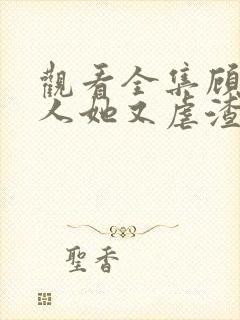 觀看全集顾
人她又虐渣
聖香